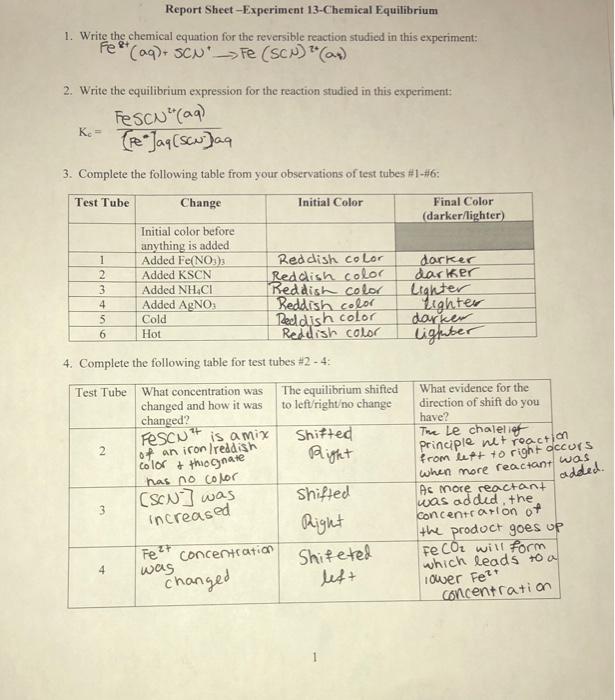 Report Sheet –Experiment 13-Chemical Equilibrium
1. Write the chemical equation for the reversible reaction studied in this experiment:
Fe²⁺(aq) + SCN⁻ → Fe (SCN)²⁺(aq)
2. Write the equilibrium expression for the reaction studied in this experiment:
FeSCN²⁺(aq)
Kc =
[Fe]aq[SCN⁻]aq
3. Complete the following table from your observations of test tubes #1-#6:
Test Tube Change Initial Color Final Color
(darker/lighter)
Initial color before
anything is added
1 Added Fe(NO₃)₃ Reddish color darker
2 Added KSCN Reddish color darker
3 Added NH₄Cl Reddish color Lighter
4 Added AgNO₃ Reddish color Lighter
5 Cold Reddish color darker
6 Hot Reddish color Lighter
4. Complete the following table for test tubes #2 - 4:
Test Tube
What concentration was
changed and how it was
changed?
The equilibrium shifted
to left/right/no change
What evidence for the
direction of shift do you
have?
2
FeSCN²⁺ is a mix
of an iron/reddish
color + thiognate
has no color
Shifted
Right
The Le chalelief
principle net reaction
from left to right occurs
when more reactant was
added.
3
[SCN⁻] was
increased
Shifted
Right
As more reactant
was added, the
concentration of
the product goes up
4
Fe²⁺ concentration
was
changed
Shifeted
left
FeCO₂ will form
which leads to a
lower Fe²⁺
concentration
1